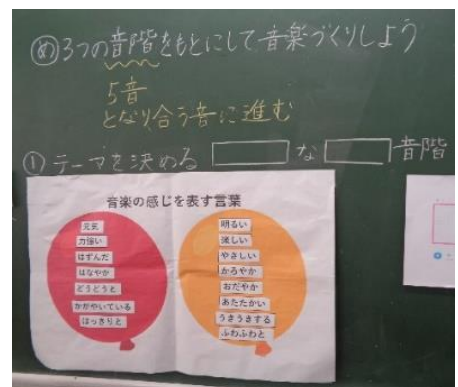 め 3つの音階をもとにして音楽づくりしよう
5音
となり合う音に進む
① テーマを決める な 音階
音楽の感じを表す言葉
元気
力強い
はずんだ
はなやか
どうどうと
かがやいている
はっきりと
明るい
楽しい
やさしい
かろやか
おだやか
あたたかい
うきうきする
ふわふわと